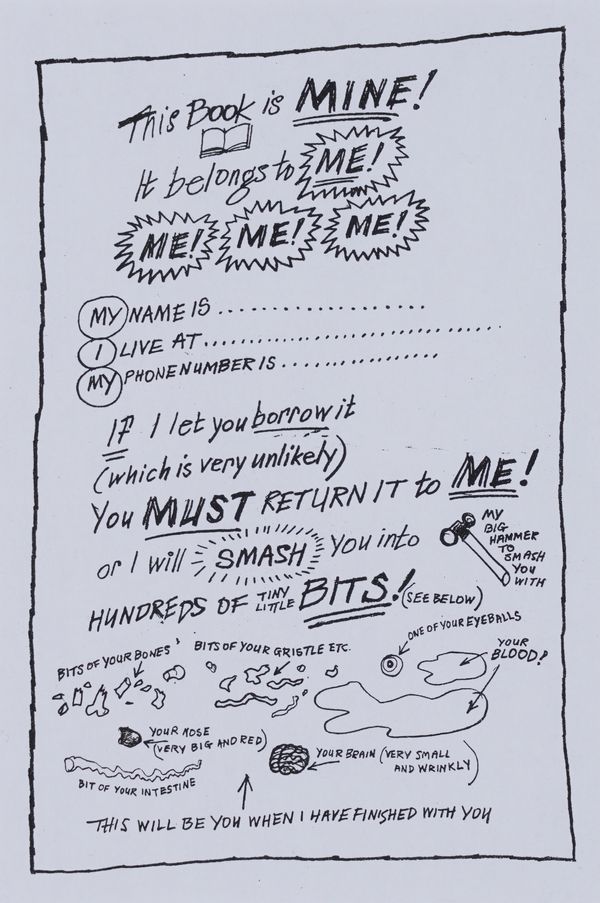 This Book is MINE!
It belongs to ME!
ME! ME! ME!
MY NAME IS ..............................
I LIVE AT ..............................
MY PHONE NUMBER IS ..................
IF I let you borrow it
(which is very unlikely)
You MUST RETURN IT to ME!
or I will SMASH You into
MY
BIG
HAMMER
TO
SMASH
YOU
WITH
HUNDREDS OF TINY LITTLE BITS! (SEE BELOW)
BITS OF YOUR BONES
BITS OF YOUR GRISTLE ETC.
ONE OF YOUR EYEBALLS
YOUR
BLOOD!
YOUR NOSE
(VERY BIG AND RED)
YOUR BRAIN (VERY SMALL
AND WRINKLY)
BIT OF YOUR INTESTINE
THIS WILL BE YOU WHEN I HAVE FINISHED WITH YOU